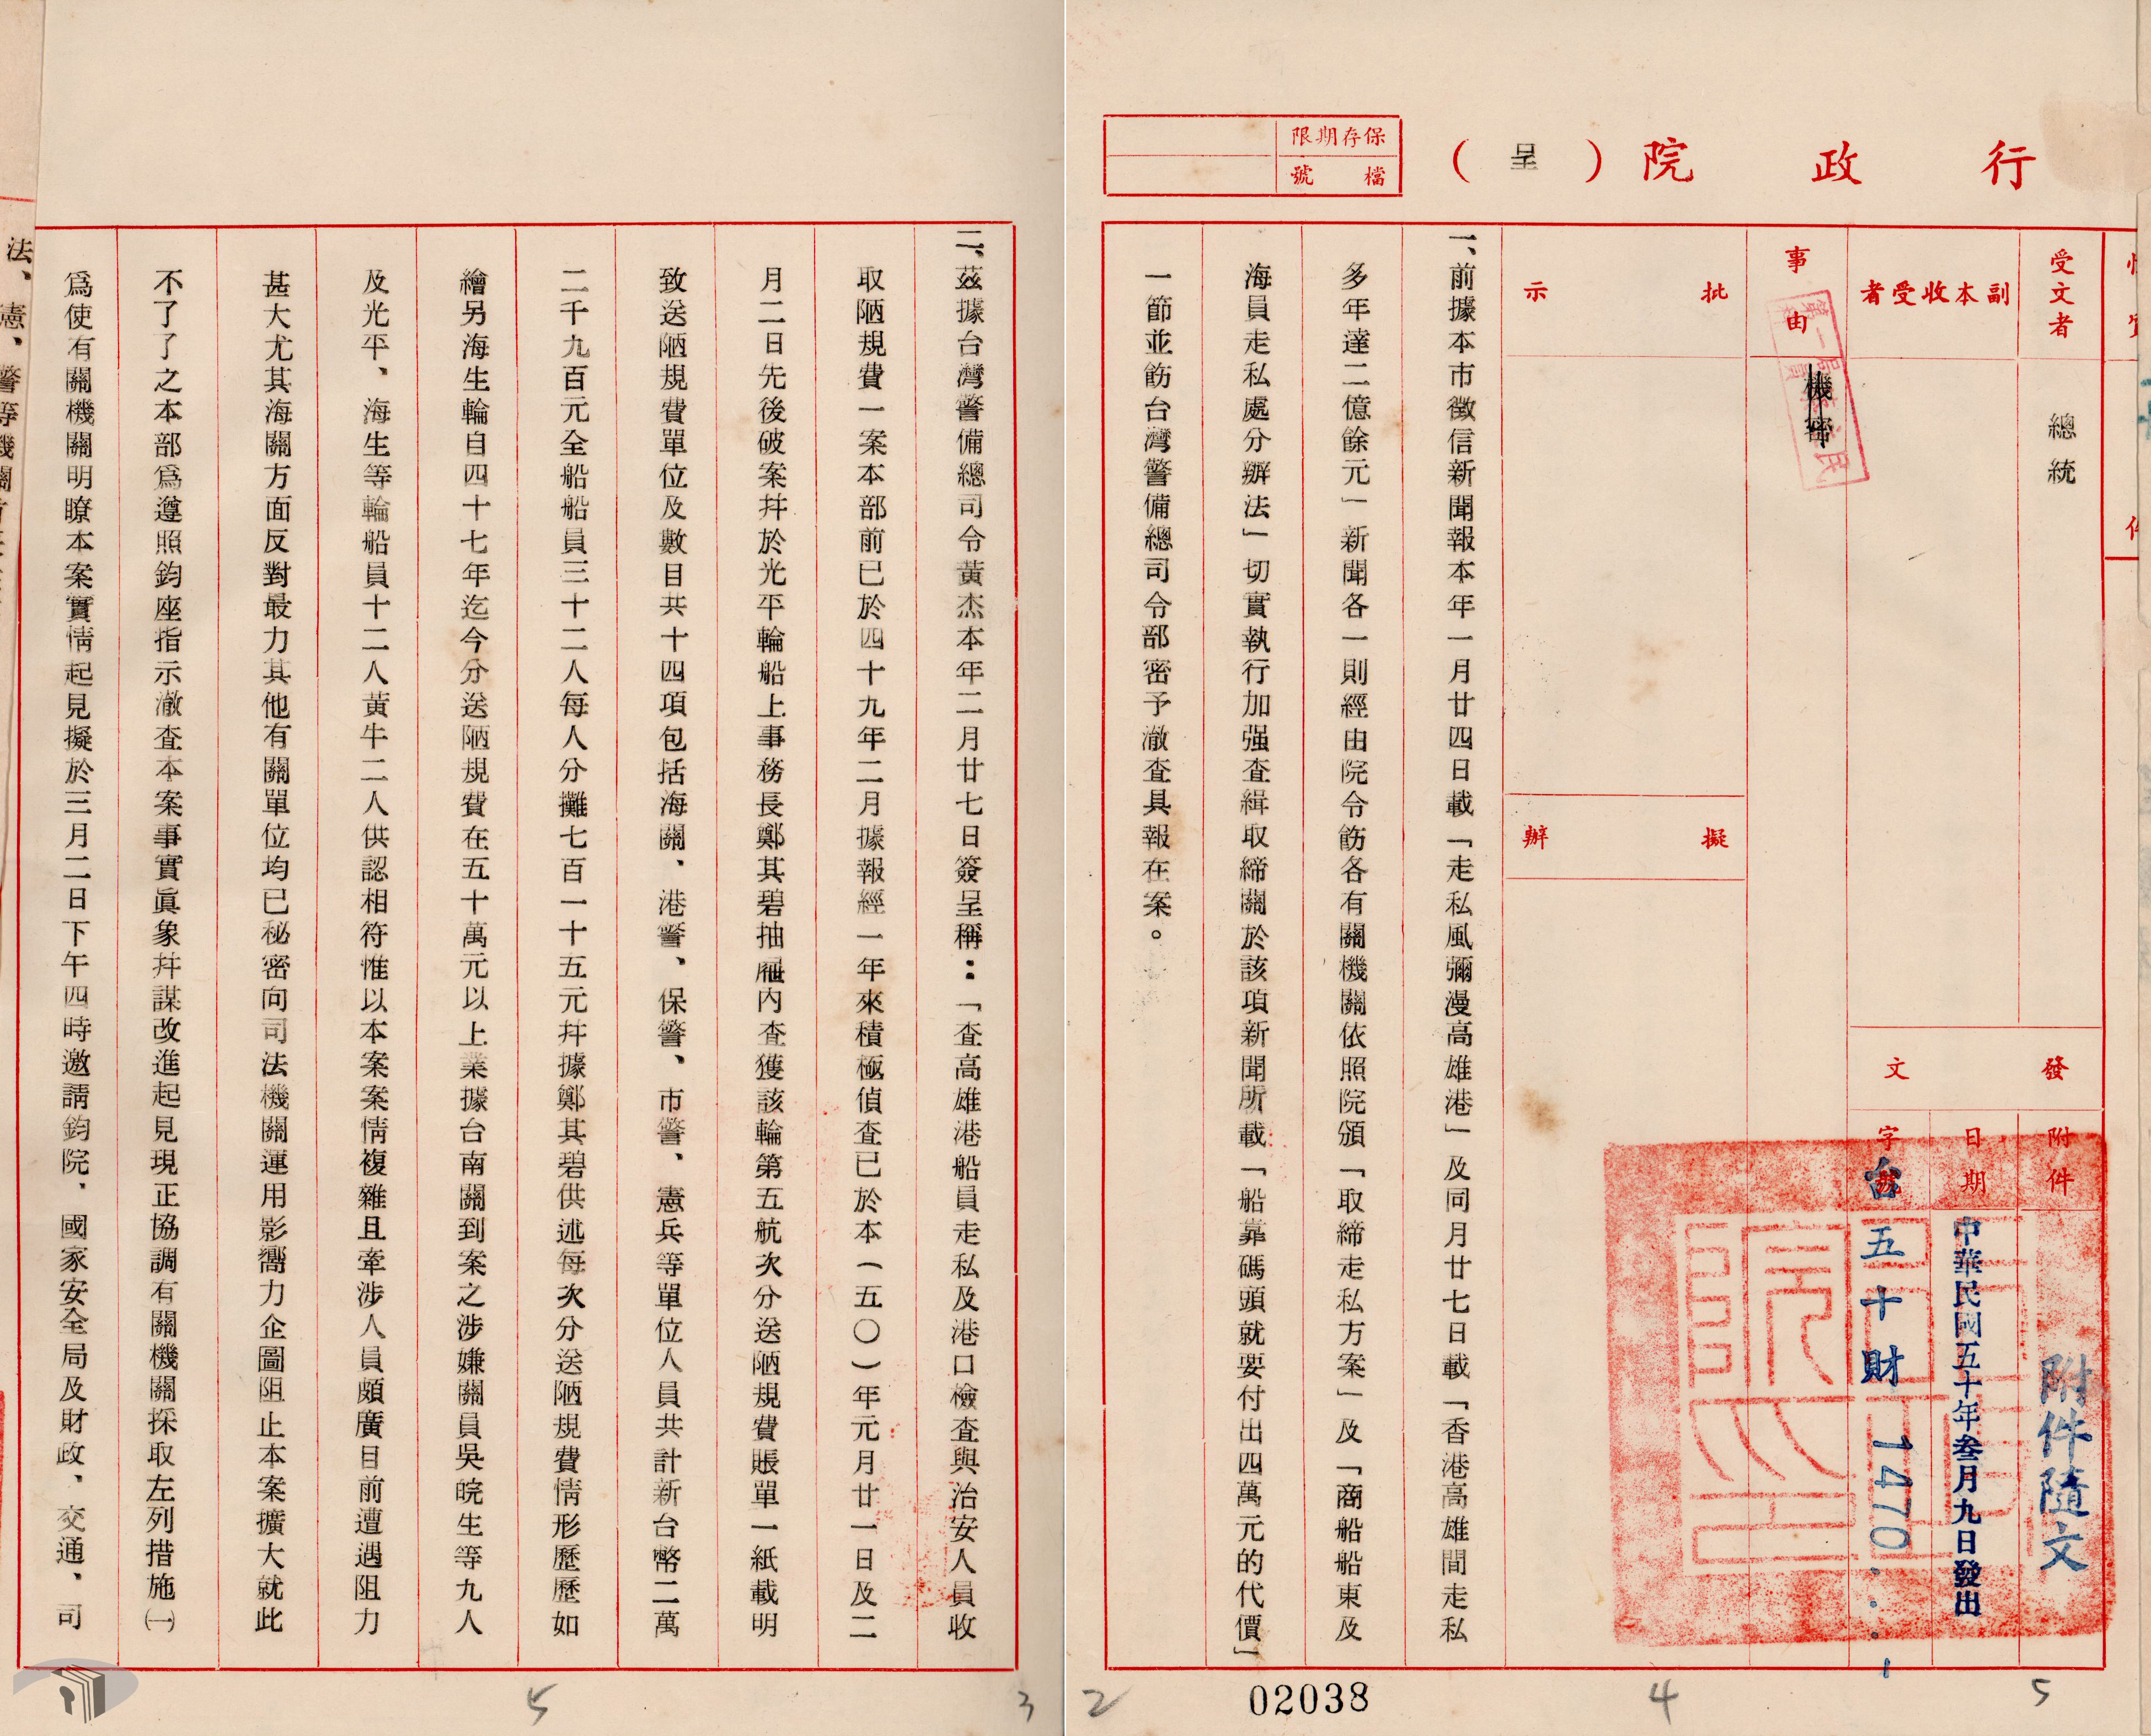 行政院（呈）
保存期限
檔號
受文者
總統
副本收受者
事由
機密
批示
擬辦
發文
附件
附件隨文
日期
中華民國五十年叁月九日發出
字號
台五十財1470
一、前據本市徵信新聞報本年一月廿四日載「走私風彌漫高雄港」及同月廿七日載「香港高雄間走私
多年達二億餘元」新聞各一則經由院令飭各有關機關依照院頒「取締走私方案」及「商船船東及
海員走私處分辦法」切實執行加强查緝取締關於該項新聞所載「船靠碼頭就要付出四萬元的代價」
一節並飭台灣警備總司令部密予澈查具報在案。
02038
2
4
5
二、茲據台灣警備總司令黃杰本年二月廿七日簽呈稱：「查高雄港船員走私及港口檢查與治安人員收
取陋規費一案本部前已於四十九年二月據報經一年來積極偵查已於本（五〇）年元月廿一日及二
月二日先後破案幷於光平輪船上事務長鄭其碧抽屜內查獲該輪第五航次分送陋規費賬單一紙載明
致送陋規費單位及數目共十四項包括海關、港警、保警、市警、憲兵等單位人員共計新台幣二萬
二千九百元全船船員三十二人每人分攤七百一十五元幷據鄭其碧供述每次分送陋規費情形歷歷如
繪另海生輪自四十七年迄今分送陋規費在五十萬元以上業據台南關到案之涉嫌關員吳皖生等九人
及光平、海生等輪船員十二人黃牛二人供認相符惟以本案案情複雜且牽涉人員頗廣目前遭遇阻力
甚大尤其海關方面反對最力其他有關單位均已秘密向司法機關運用影嚮力企圖阻止本案擴大就此
不了了之本部爲遵照鈞座指示澈查本案事實眞象幷謀改進起見現正協調有關機關採取左列措施㈠
爲使有關機關明瞭本案實情起見擬於三月二日下午四時邀請鈞院、國家安全局及財政、交通、司
法、憲、警等機關
5
3